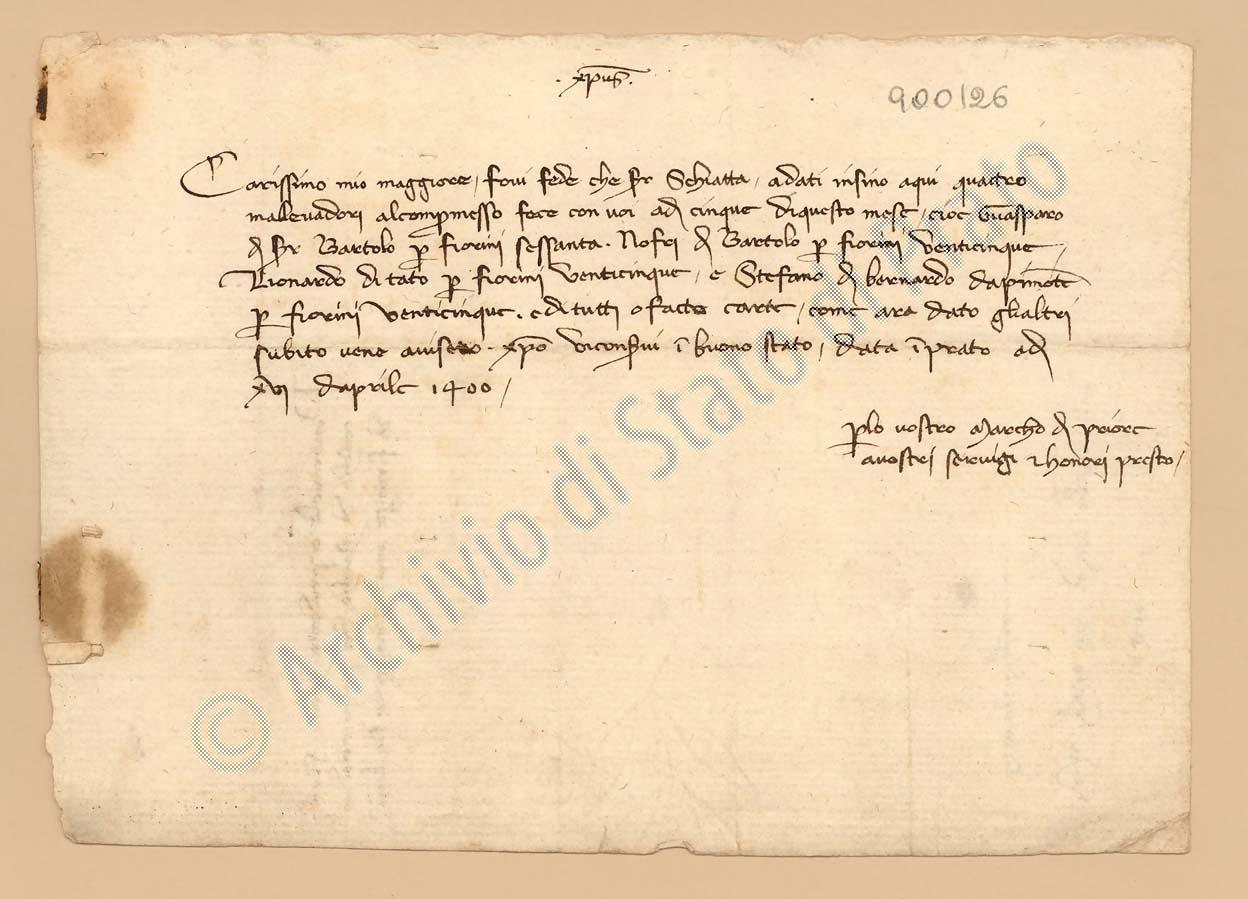 . xpus .
900/26
Carissimo mio maggiore / fovi fede che sr Schiatta / a dati insino aqui quattro
mallevadori alcompmesso fece con voi ad cinque diquesto mese / cioe Guasparo
d sr Bartolo p fiorini sessanta . Nofri d Bartolo p fiorini venticinque /
Lionardo di tato p fiorini venticinque / e Stefano d bernardo dapimōte
p fiorini venticinque . e di tutti o facto carte / come ara dato glialtri
subito vene avisero . xpo viconsvi ī buono stato / data ī prato ad
xvi daprile 1400 /
plo vostro Marcho d priore
avostri servigi & honori presto /
© Archivio di Stato di Prato